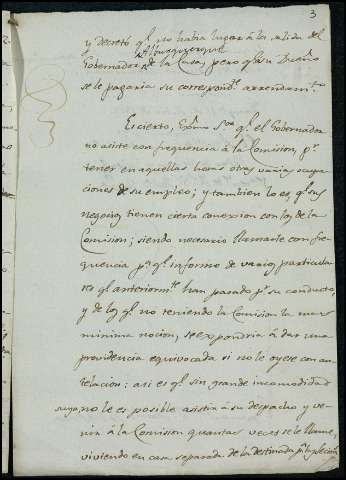 3
y decretó q.e no habia lugar á la salida del
Alburquerque
Gobernador de la Casa, pero q.e á su Dueño
se le pagaria su correspond.te arrendam.to
Es cierto, Exmo Sor q.e el Gobernador
no asiste con frequencia á la Comision, p.r
tener en aquellas horas otras varias ocupa
ciones de su empleo; y tambien lo es, q.e sus
negocios tienen cierta conexion con los de la
Comision; siendo necesario llamarle con fre
quencia p.a q.e informe de varios particula
res q.e anteriorm.te han pasado p.r su conducto,
y de los q.e no teniendo la Comision la mas
minima nocion, se expondria á dar una
providencia equivocada si no le oyese con an
telacion: asi es q.e sin grande incomodidad
suya no le es posible asistir á su despacho y ve-
nir á la Comision quantas veces se le llame,
viviendo en casa separada de la destinada p.a